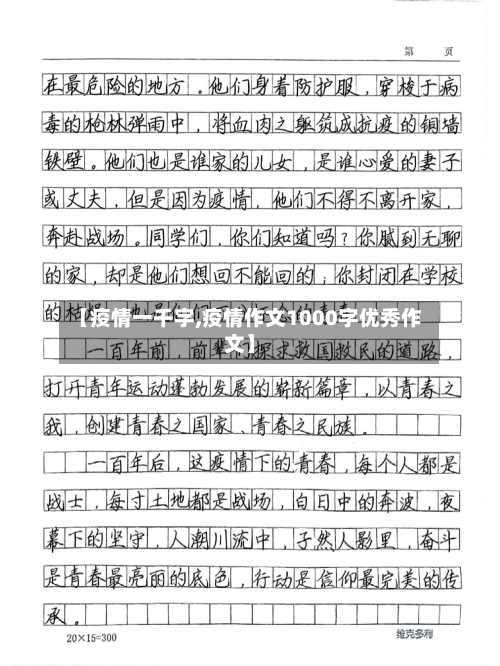 第 页
在最危险的地方。他们身着防护服，穿梭于病
毒的枪林弹雨中，将血肉之躯筑成抗疫的铜墙
铁壁。他们也是谁家的儿女，是谁心爱的妻子
或丈夫，但是因为疫情，他们不得不离开家，
奔赴战场。同学们，你们知道吗？你腻到无聊
的家，却是他们想回不能回的；你封闭在学校
的枯燥，
【疫情一千字,疫情作文1000字优秀作
文】
一百年前，前辈们探求救国救民的道路，
打开青年运动蓬勃发展的崭新篇章，以青春之
我，创建青春之国家、青春之民族。
一百年后，这疫情下的青春，每个人都是
战士，每寸土地都是战场，白日中的奔波，夜
幕下的坚守，人潮川流中，孑然人影里，奋斗
是青春最亮丽的底色，行动是信仰最完美的传
承。
20×15=300
维克多利